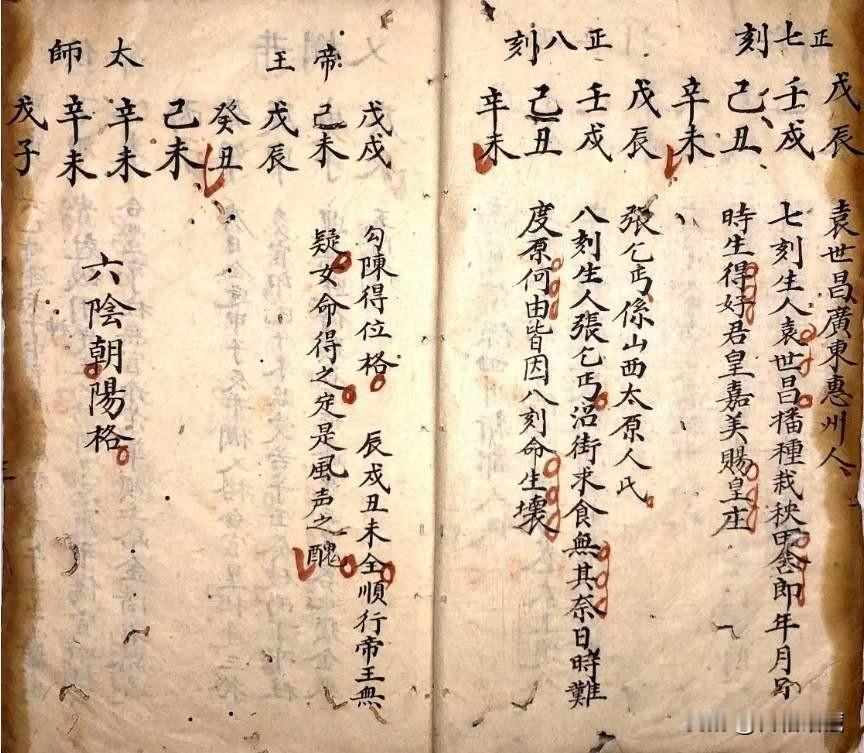 正七刻
戊辰
壬戌
己丑
辛未
袁世昌廣東惠州人
七刻生人袁世昌播種栽秧田舍郎年月
時生得好君皇嘉美賜皇庄
正八刻
戊辰
壬戌
己丑
辛未
張乞丐係山西太原人氏
八刻生人張乞丐沿街求食無其奈日時難
度原何由皆因八刻命生壞
帝王
戊戌
己未
戊辰
癸丑
勾陳得位格 辰戌丑未全順行帝王無
疑女命得之定是風声之醜
太師
己未
辛未
辛未
戊子
六陰朝陽格